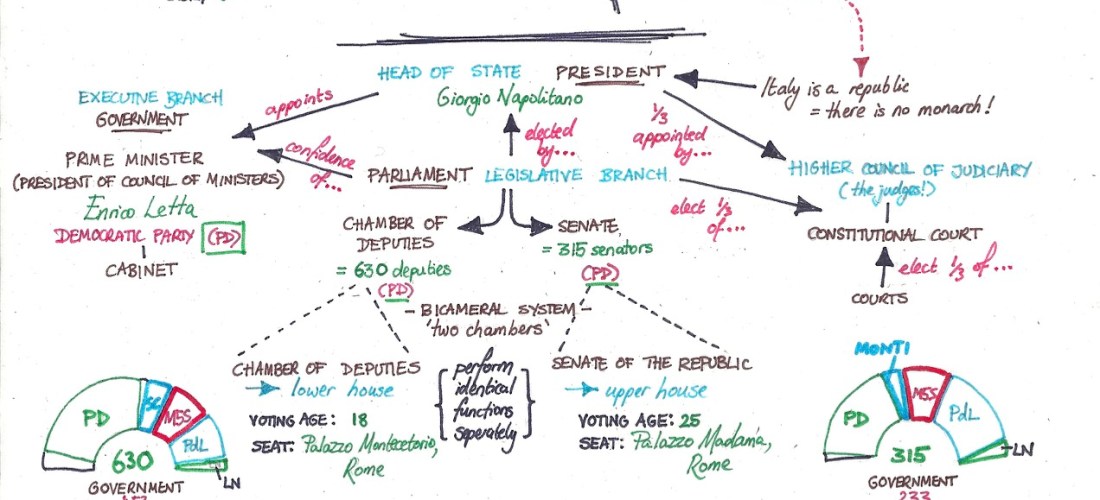 HEAD OF STATE PRESIDENT
Giorgio Napolitano
Italy is a republic
= there is no monarch!
EXECUTIVE BRANCH
GOVERNMENT
appoints
elected
by...
1/3
appointed
by...
confidence
of...
PRIME MINISTER
(PRESIDENT OF COUNCIL OF MINISTERS)
Enrico Letta
DEMOCRATIC PARTY (PD)
CABINET
PARLIAMENT LEGISLATIVE BRANCH
HIGHER COUNCIL OF JUDICIARY
(the judges!)
elect 1/3
of...
CONSTITUTIONAL COURT
elect 1/3 of...
COURTS
CHAMBER OF
DEPUTIES
= 630 deputies
(PD)
SENATE
= 315 senators
(PD)
- BICAMERAL SYSTEM -
'two chambers'
CHAMBER OF DEPUTIES
lower house
VOTING AGE: 18
SEAT: Palazzo Montecetorio,
Rome
perform
identical
functions
seperately
SENATE OF THE REPUBLIC
upper house
VOTING AGE: 25
SEAT: Palazzo Madama,
Rome
PD
SC
M5S
PdL
LN
630
GOVERNMENT
MONTI
PD
M5S
PdL
LN
315
GOVERNMENT